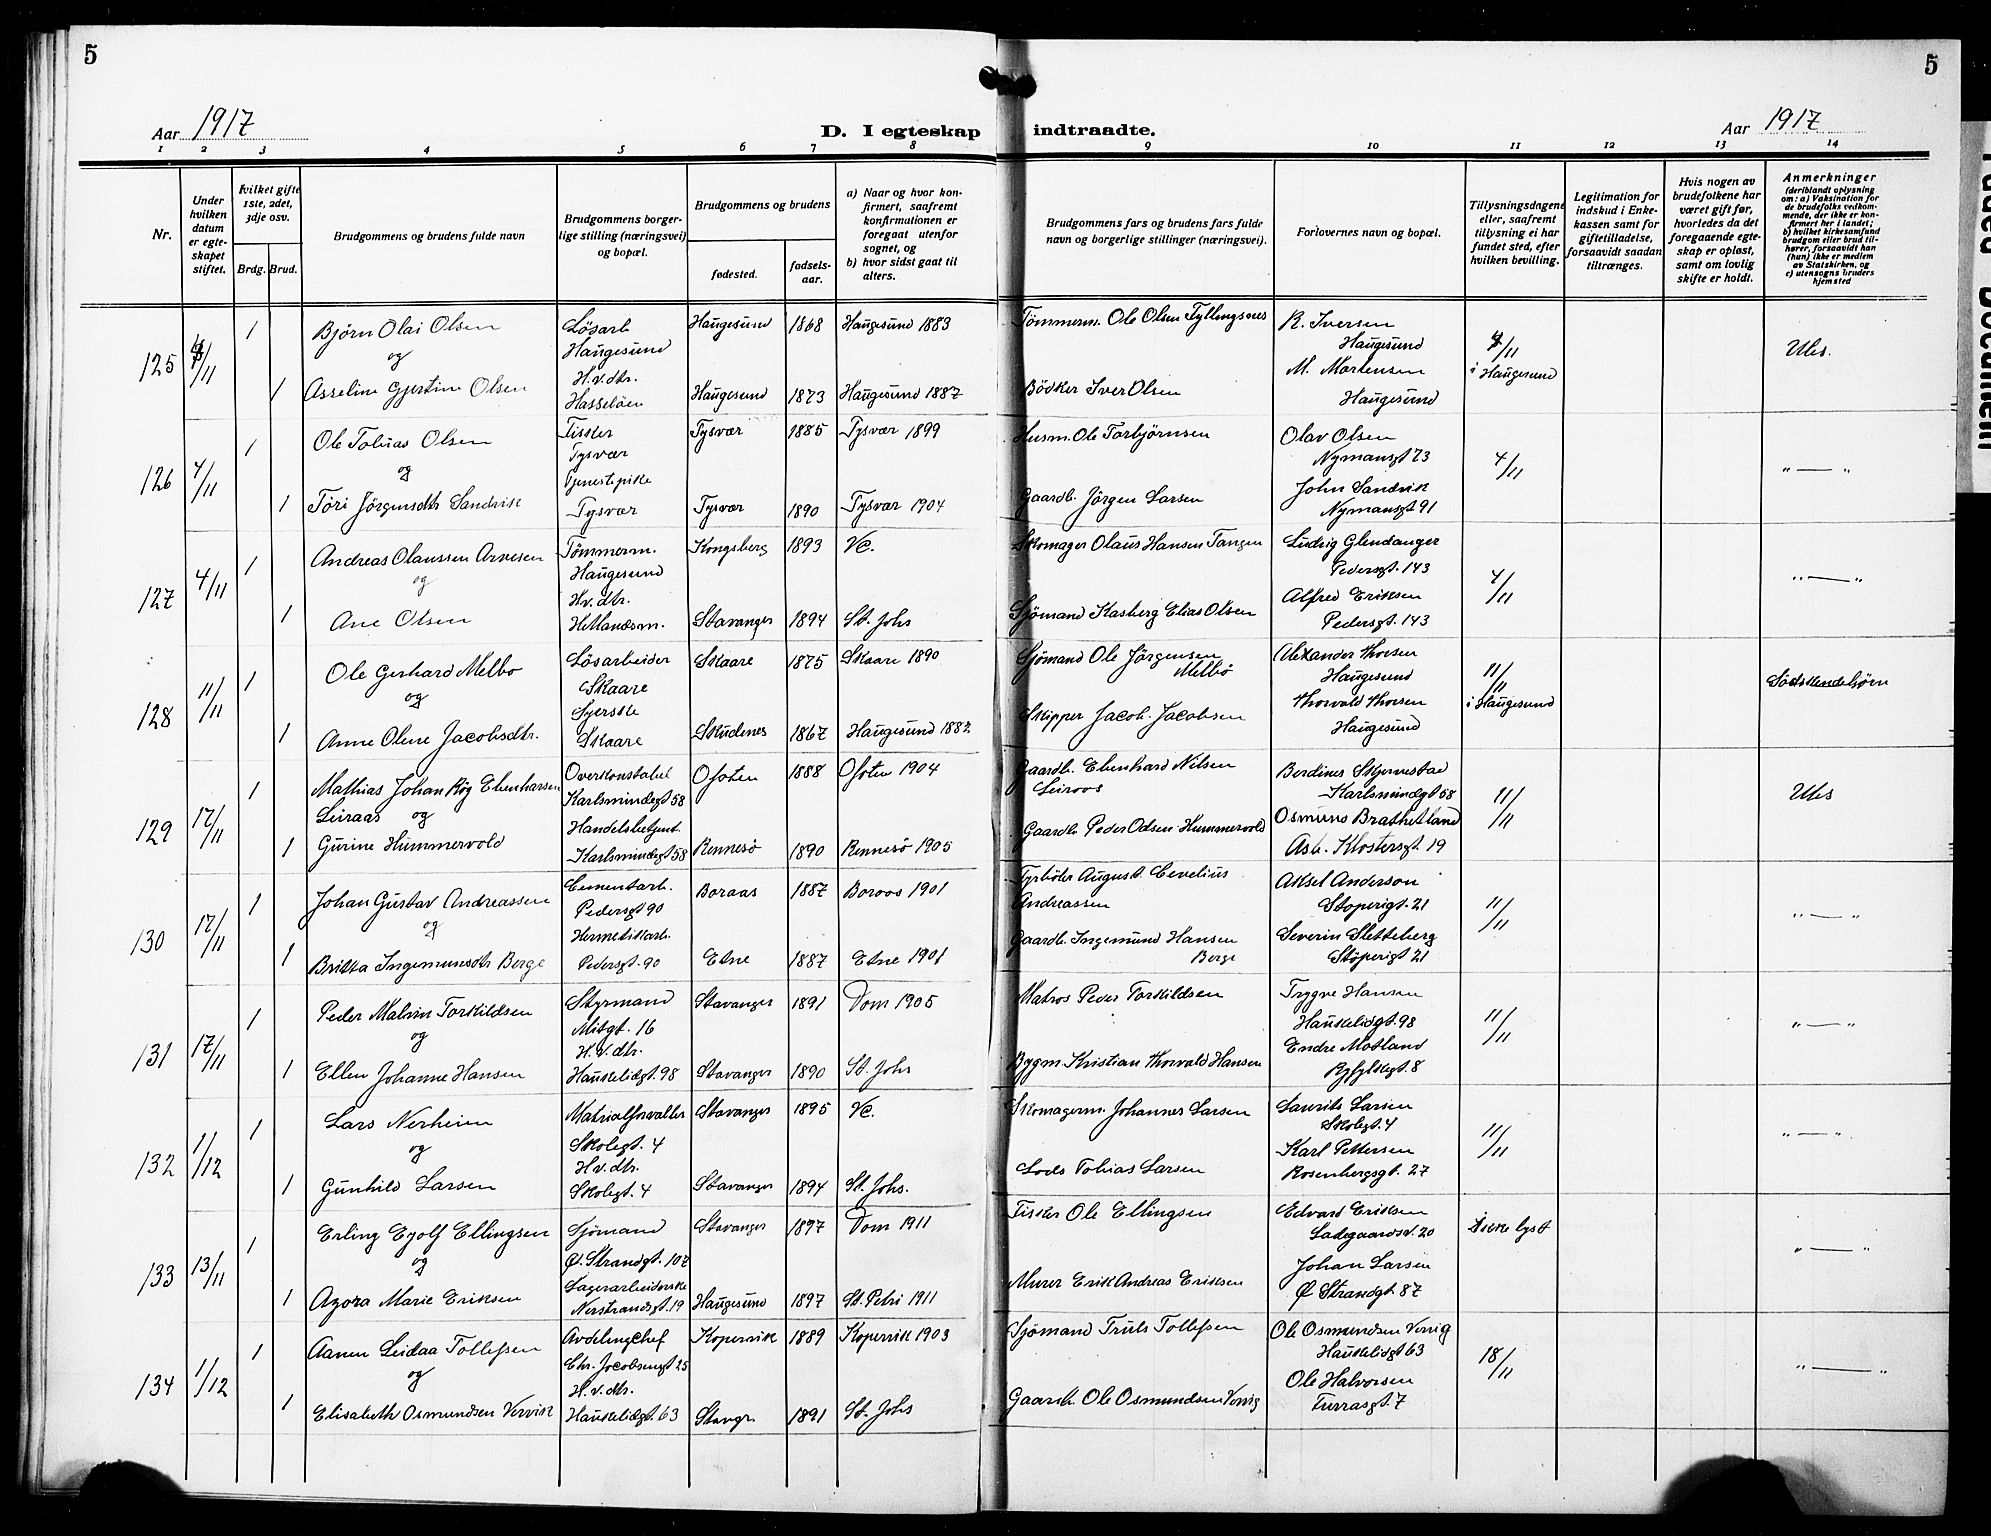 5
5
Aar 1917
D. I egteskap indtraadte.
Aar 1917
1 2 3 4 5 6 7 8 9 10 11 12 13 14
Nr.
Under hvilken datum er egteskapet stiftet.
hvilket gifte 1ste, 2det, 3dje osv.
Brdg. Brud.
Brudgommens og brudens fulde navn
Brudgommens borgerlige stilling (næringsvei) og bopæl.
Brudgommens og brudens
fødested.
fødselsaar.
a) Naar og hvor konfirmert, saafremt konfirmationen er foregaat utenfor sognet, og
b) hvor sidst gaat til alters.
Brudgommens fars og brudens fars fulde navn og borgerlige stillinger (næringsvei).
Forlovernes navn og bopæl.
Tillysningsdagene eller, saafremt tillysning ei har fundet sted, efter hvilken bevilling.
Legitimation for indskud i Enkekassen samt for giftetilladelse, forsaavidt saadan tiltrænges.
Hvis nogen av brudefolkene har været gift før, hvorledes da det foregaaende egteskap er opløst, samt om lovlig skifte er holdt.
Anmerkninger (deriblandt oplysning om: a) Vaksination for de brudefolks vedkommende, der ikke er konfirmert her i landet; b) hvilket kirkesamfund brudgom eller brud tilhører, forsaavidt han (hun) ikke er medlem av Statskirken, og c) utensogns bruders hjemsted
125 4/11 1 Bjørn Olai Olsen Løsarb Haugesund Haugesund 1868 Haugesund 1883 Tømmerm. Ole Olsen Fyllingsnes R. Iversen Haugesund 4/11 i Haugesund Ubs.
og
1 Asseline Gjertine Olsen H.v.dtr. Hasseløen Haugesund 1873 Haugesund 1887 Bødker Iver Olsen M. Mortensen Haugesund
126 4/11 1 Ole Tobias Olsen Fisker Tysvær Tysvær 1885 Tysvær 1899 Husm. Ole Torbjørnsen Olav Olsen Nymansgt 73 4/11 " — "
og
1 Tori Jørgensdtr Sandvik Tjenestepike Tysvær Tysvær 1890 Tysvær 1904 Gaardb. Jørgen Larsen John Sandvik Nymansgt 91
127 4/11 1 Andreas Olaussen Arnesen Tømmerm. Haugesund Kongsberg 1893 Vc. Skomager Olaus Hansen Tangen Ludvig Glendanger Pedersgt. 143 4/11 " — "
og
1 Ane Olsen Hv. dtr. Hetlandsm. Stavanger 1894 St. Johs Sjømand Kasberg Elias Olsen Alfred Eriksen Pedersgt. 143
128 11/11 1 Ole Gerhard Melbø Løsarbeider Skaare Skaare 1875 Skaare 1890 Sjømand Ole Jørgensen Melbø Alexander Thorsen Haugesund 11/11 i Haugesund Sødskendebørn
og
1 Anne Oline Jacobsdtr. Syerske Skaare Skudenes 1867 Haugesund 1882 Skipper Jacob Jacobsen Thorvald Thorsen Haugesund
129 17/11 1 Mathias Johan Røg Ebenhardsen Leiraas Overkonstabel Karlsmindegt 58 Ofoten 1888 Ofoten 1904 Gaardb. Ebenhard Nilsen Leiroos Berdines Skjernestad Karlsmindgt 58 11/11 Ubs
og
1 Gurine Hummervold Handelsbetjent Karlsmindegt 58 Rennesø 1890 Rennesø 1905 Gaardb Peder Odsen Hummervold Osmund Brathetland Asb. Klostersgt. 19
130 17/11 1 Johan Gustav Andreassen Cementarb. Pedersgt 90 Boraas 1887 Boroos 1901 Fyrbøter August Cevelius Andreassen Aksel Anderson Støperigt. 21 11/11 " — "
og
1 Britta Ingemundsdtr Berge Hermetikarb. Pedersgt. 90 Etne 1887 Etne 1901 Gaardb. Ingemund Hansen Berge Severin Sletteberg Støperigt 21
131 17/11 1 Peder Malvin Torkildsen Styrmand Mitgt. 16 Stavanger 1891 Dom 1905 Matros Peder Torkildsen Trygve Hansen Haukelidgt. 98 11/11 " — "
og
1 Ellen Johanne Hansen H. v. dtr. Haukelidgt. 98 Stavanger 1890 St. Johs Bygm. Kristian Thorvald Hansen Endre Motland Ryfylkegt. 8
132 1/12 1 Lars Nerheim Matrialforvalter Skolegt. 4 Stavanger 1895 Vc. Skomagerm. Johannes Larsen Laurits Larsen Skolegt. 4 11/11 " — "
og
1 Gunhild Larsen Hv. dtr. Skolegt. 4 Stavanger 1894 St. Johs. Lods Tobias Larsen Karl Pettersen Rosenbergsgt. 27
133 13/11 1 Erling Eyolf Ellingsen Sjømand Ø. Strandgt. 107 Stavanger 1897 Dom 1911 Fisker Ole Ellingsen Edvard Eriksen Ladegaardsv. 20 Ikke lyst " — "
og
1 Agora Marie Eriksen Lagerarbeiderske Nerstrandsgt. 19 Haugesund 1897 St. Petri 1911 Murer Erik Andreas Eriksen Johan Larsen Ø Strandgt. 87
134 1/12 1 Aanen Leidaa Tollefsen Avdelingchef Chr. Jacobsensgt 25 Kopervik 1889 Kopervik 1903 Sjømand Truls Tollefsen Ole Osmundsen Vervig Haukelidgt 63 18/11 " — "
og
1 Elisabeth Osmundsen Vervik H. v. dtr. Haukelidgt. 63 Stavgr. 1891 St. Johs Gaardb. Ole Osmundsen Vervig Ole Halvorsen Furrasgt. 7